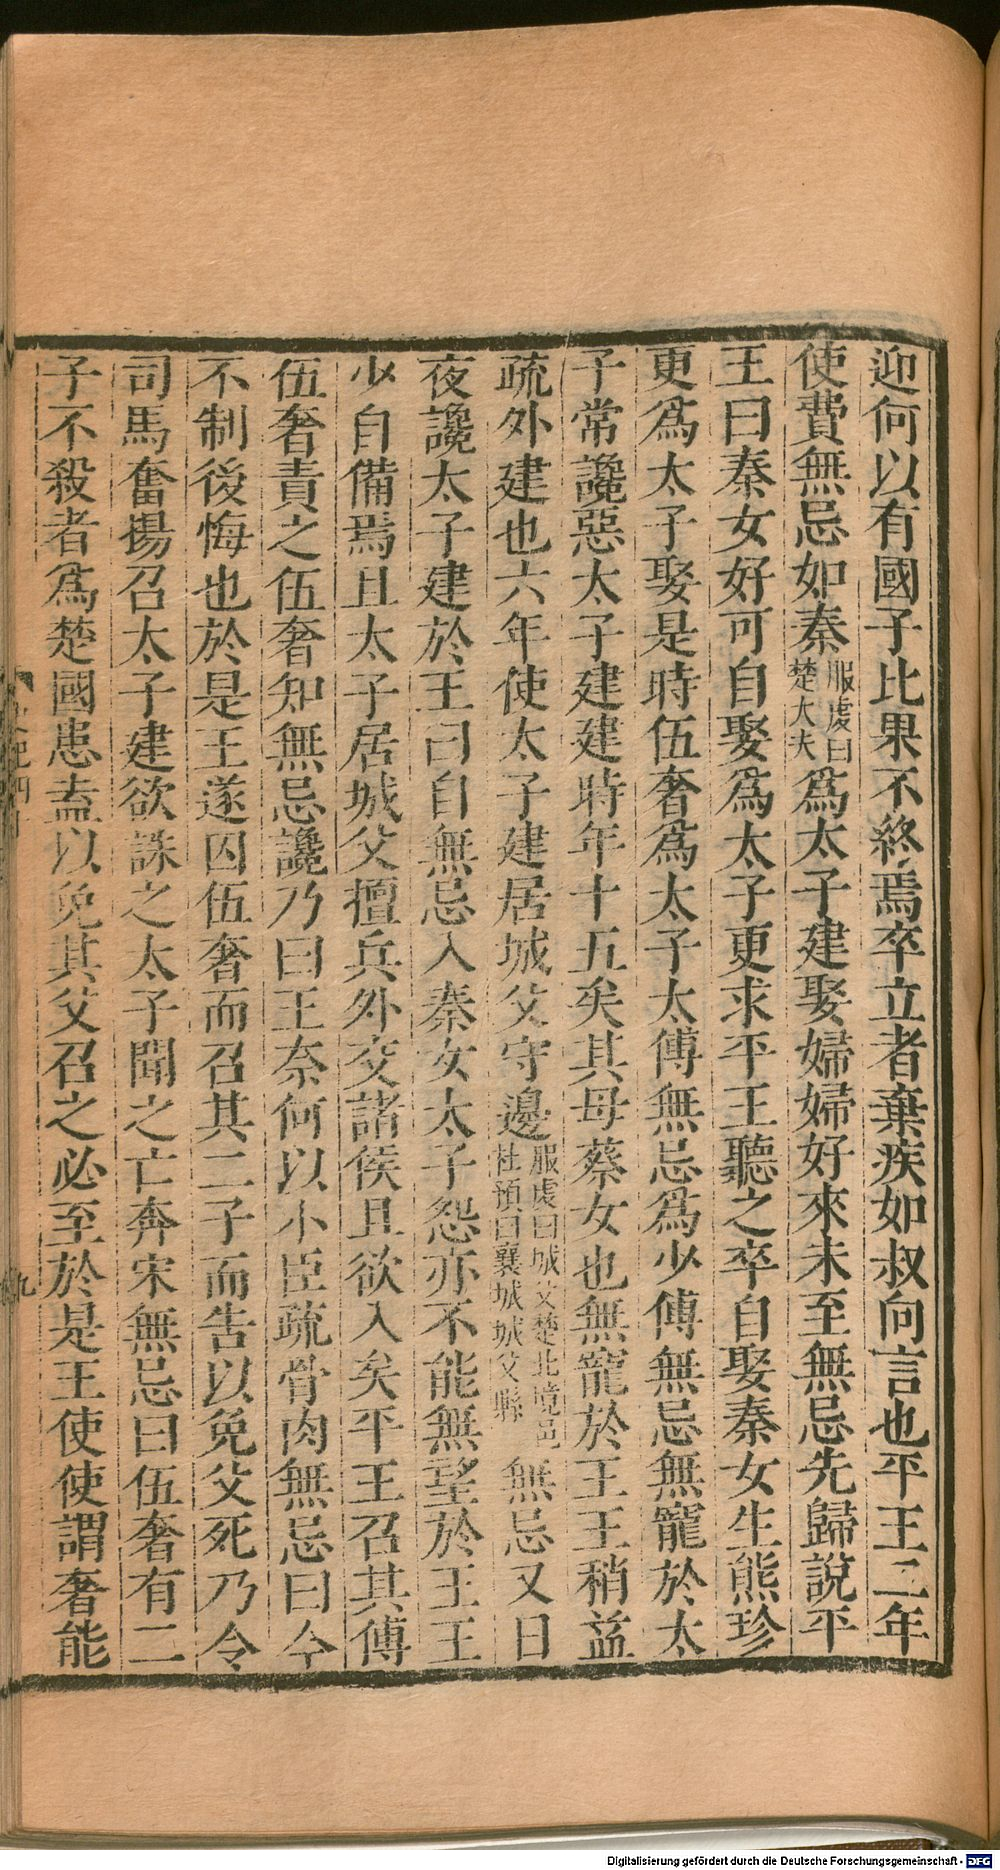 迎何以有國子比果不終焉卒立者棄疾如叔向言也平王二年
使費無忌如秦服虔曰楚大夫爲太子建娶婦婦好來未至無忌先歸說平
王曰秦女好可自娶爲太子更求平王聽之卒自娶秦女生熊珍
更爲太子娶是時伍奢爲太子太傅無忌爲少傅無忌無寵於太
子常讒惡太子建建時年十五矣其母蔡女也無寵於王王稍益
疏外建也六年使太子建居城父守邊服虔曰城父楚北境邑杜預曰襄城城父縣無忌又日
夜讒太子建於王曰自無忌入秦女太子怨亦不能無望於王王
少自備焉且太子居城父擅兵外交諸侯且欲入矣平王召其傅
伍奢責之伍奢知無忌讒乃曰王奈何以小臣疏骨肉無忌曰今
不制後悔也於是王遂囚伍奢而召其二子而告以免父死乃令
司馬奮揚召太子建欲誅之太子聞之亡奔宋無忌曰伍奢有二
子不殺者爲楚國患盍以免其父召之必至於是王使使謂奢能
九
Digitalisierung gefördert durch die Deutsche Forschungsgemeinschaft - DFG